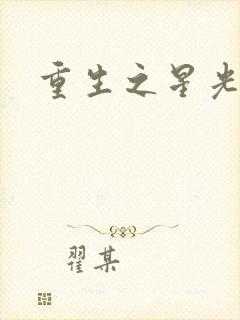 重生之星光
翟某